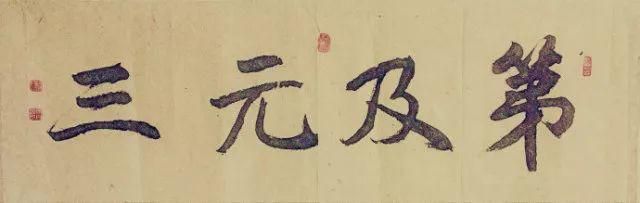 三元及第